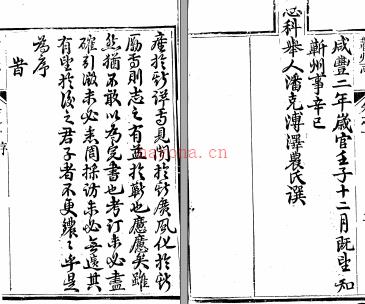 產於蘄詳焉見聞於蘄廣風化於蘄
勵焉則志之有益於蘄也應應矣雖
然猶不敢以為完書也考訂未必盡
確引徵未必悉周採訪未必無遺其
有望於後之君子者不更乎是
為序
旹
咸豐二年歲官壬子十二月既望知
蘄州事辛巳
恩科舉人潘克溥澤農氏譔
nayona.cn